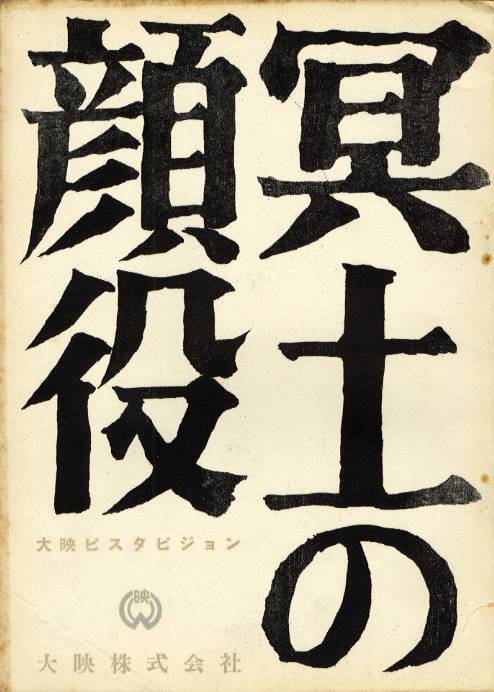 冥土の
顔役
大映ビスタビジョン
映
大映株式会社